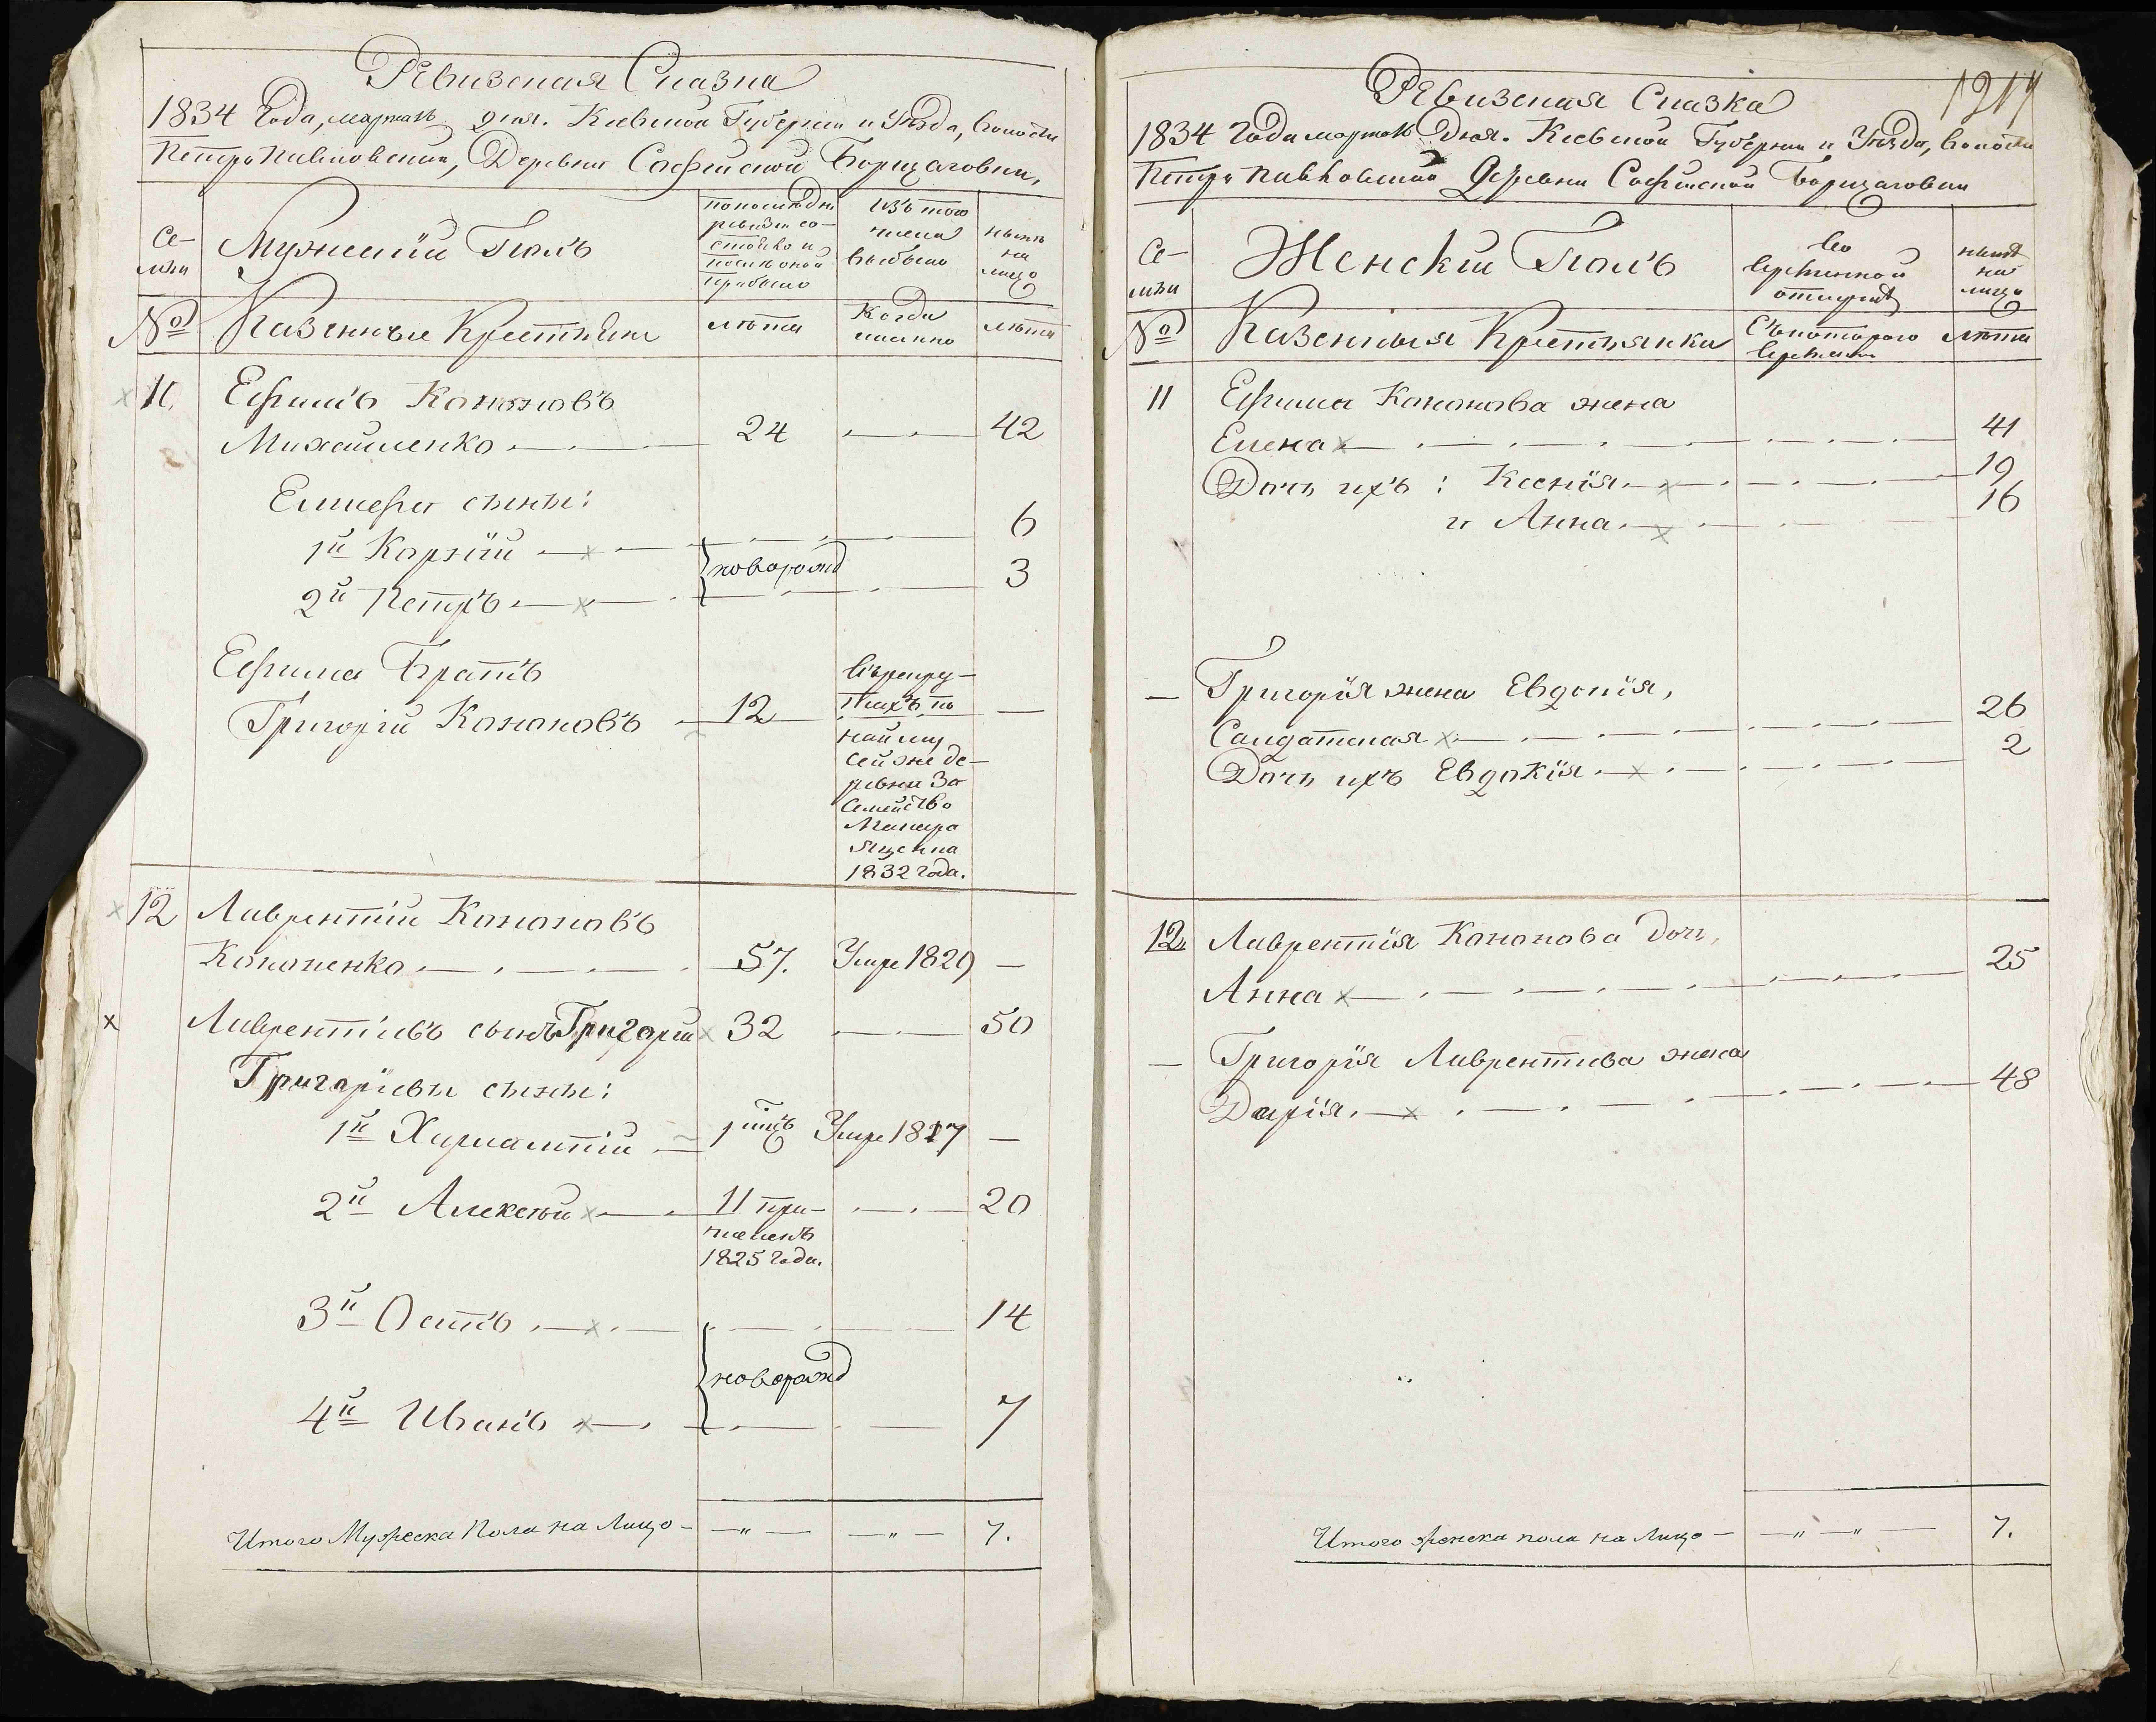 Ревизская Сказка
1834 Года, марта 16 дня. Киевской Губернии и Уезда, Волости
Петропавловской, Деревни Софийской Борщаговки,
Се-
мьи
Мужеский Полъ
по последн
ревизии со-
стояло и
после оной
прибыло
Изъ того
числа
выбыло
ныне
на
лицо
№
Казенные Крестьяне
лета
Когда
именно
лета
11.
Ефимъ Кононовъ
Михайленко
24
42
Елисеря сыны:
6
1й Карпий
новорожд
3
2й Петръ
Ефима Братъ
Григорий Кононовъ
12
Въ рекру-
тахъ по
найму
сей же де-
ревни за
Семейство
Макара
Яценка
1832 года.
—
12
Лаврентий Кононовъ
Кононенко
57.
Умре 1829
—
Лаврентиевъ сынъ Григорий
32
50
Григориевы сыны:
1й Харлампий
1 мцъ
Умре 1817
—
2й Алексей
11 при-
численъ
1825 года.
20
3й Осипъ
14
новорожд
4й Иванъ
7
Итого Мужеска Пола на Лицо —
— „ —
— „ —
7.
1217
Ревизская Сказка
1834 Года марта 16 Дня. Киевской Губернии и Уезда, Волости
Петропавловской Деревни Софийской Борщаговки
Се-
мьи
Женский Полъ
Во
временной
отлучке
ныне
на
лицо
№
Казенныя Крестьянки
Съ котораго
времени
лета
11
Ефима Кононова жена
Елена
41
Дочь ихъ: Ксения
19
и Анна
16
— Григория жена Евдокия,
Салдатская
26
Дочь ихъ Евдокия
2
12
Лаврентия Кононова дочь,
Анна
25
— Григория Лаврентиева жена
Дария.
48
Итого женска пола на Лицо —
— „ — „ —
7.